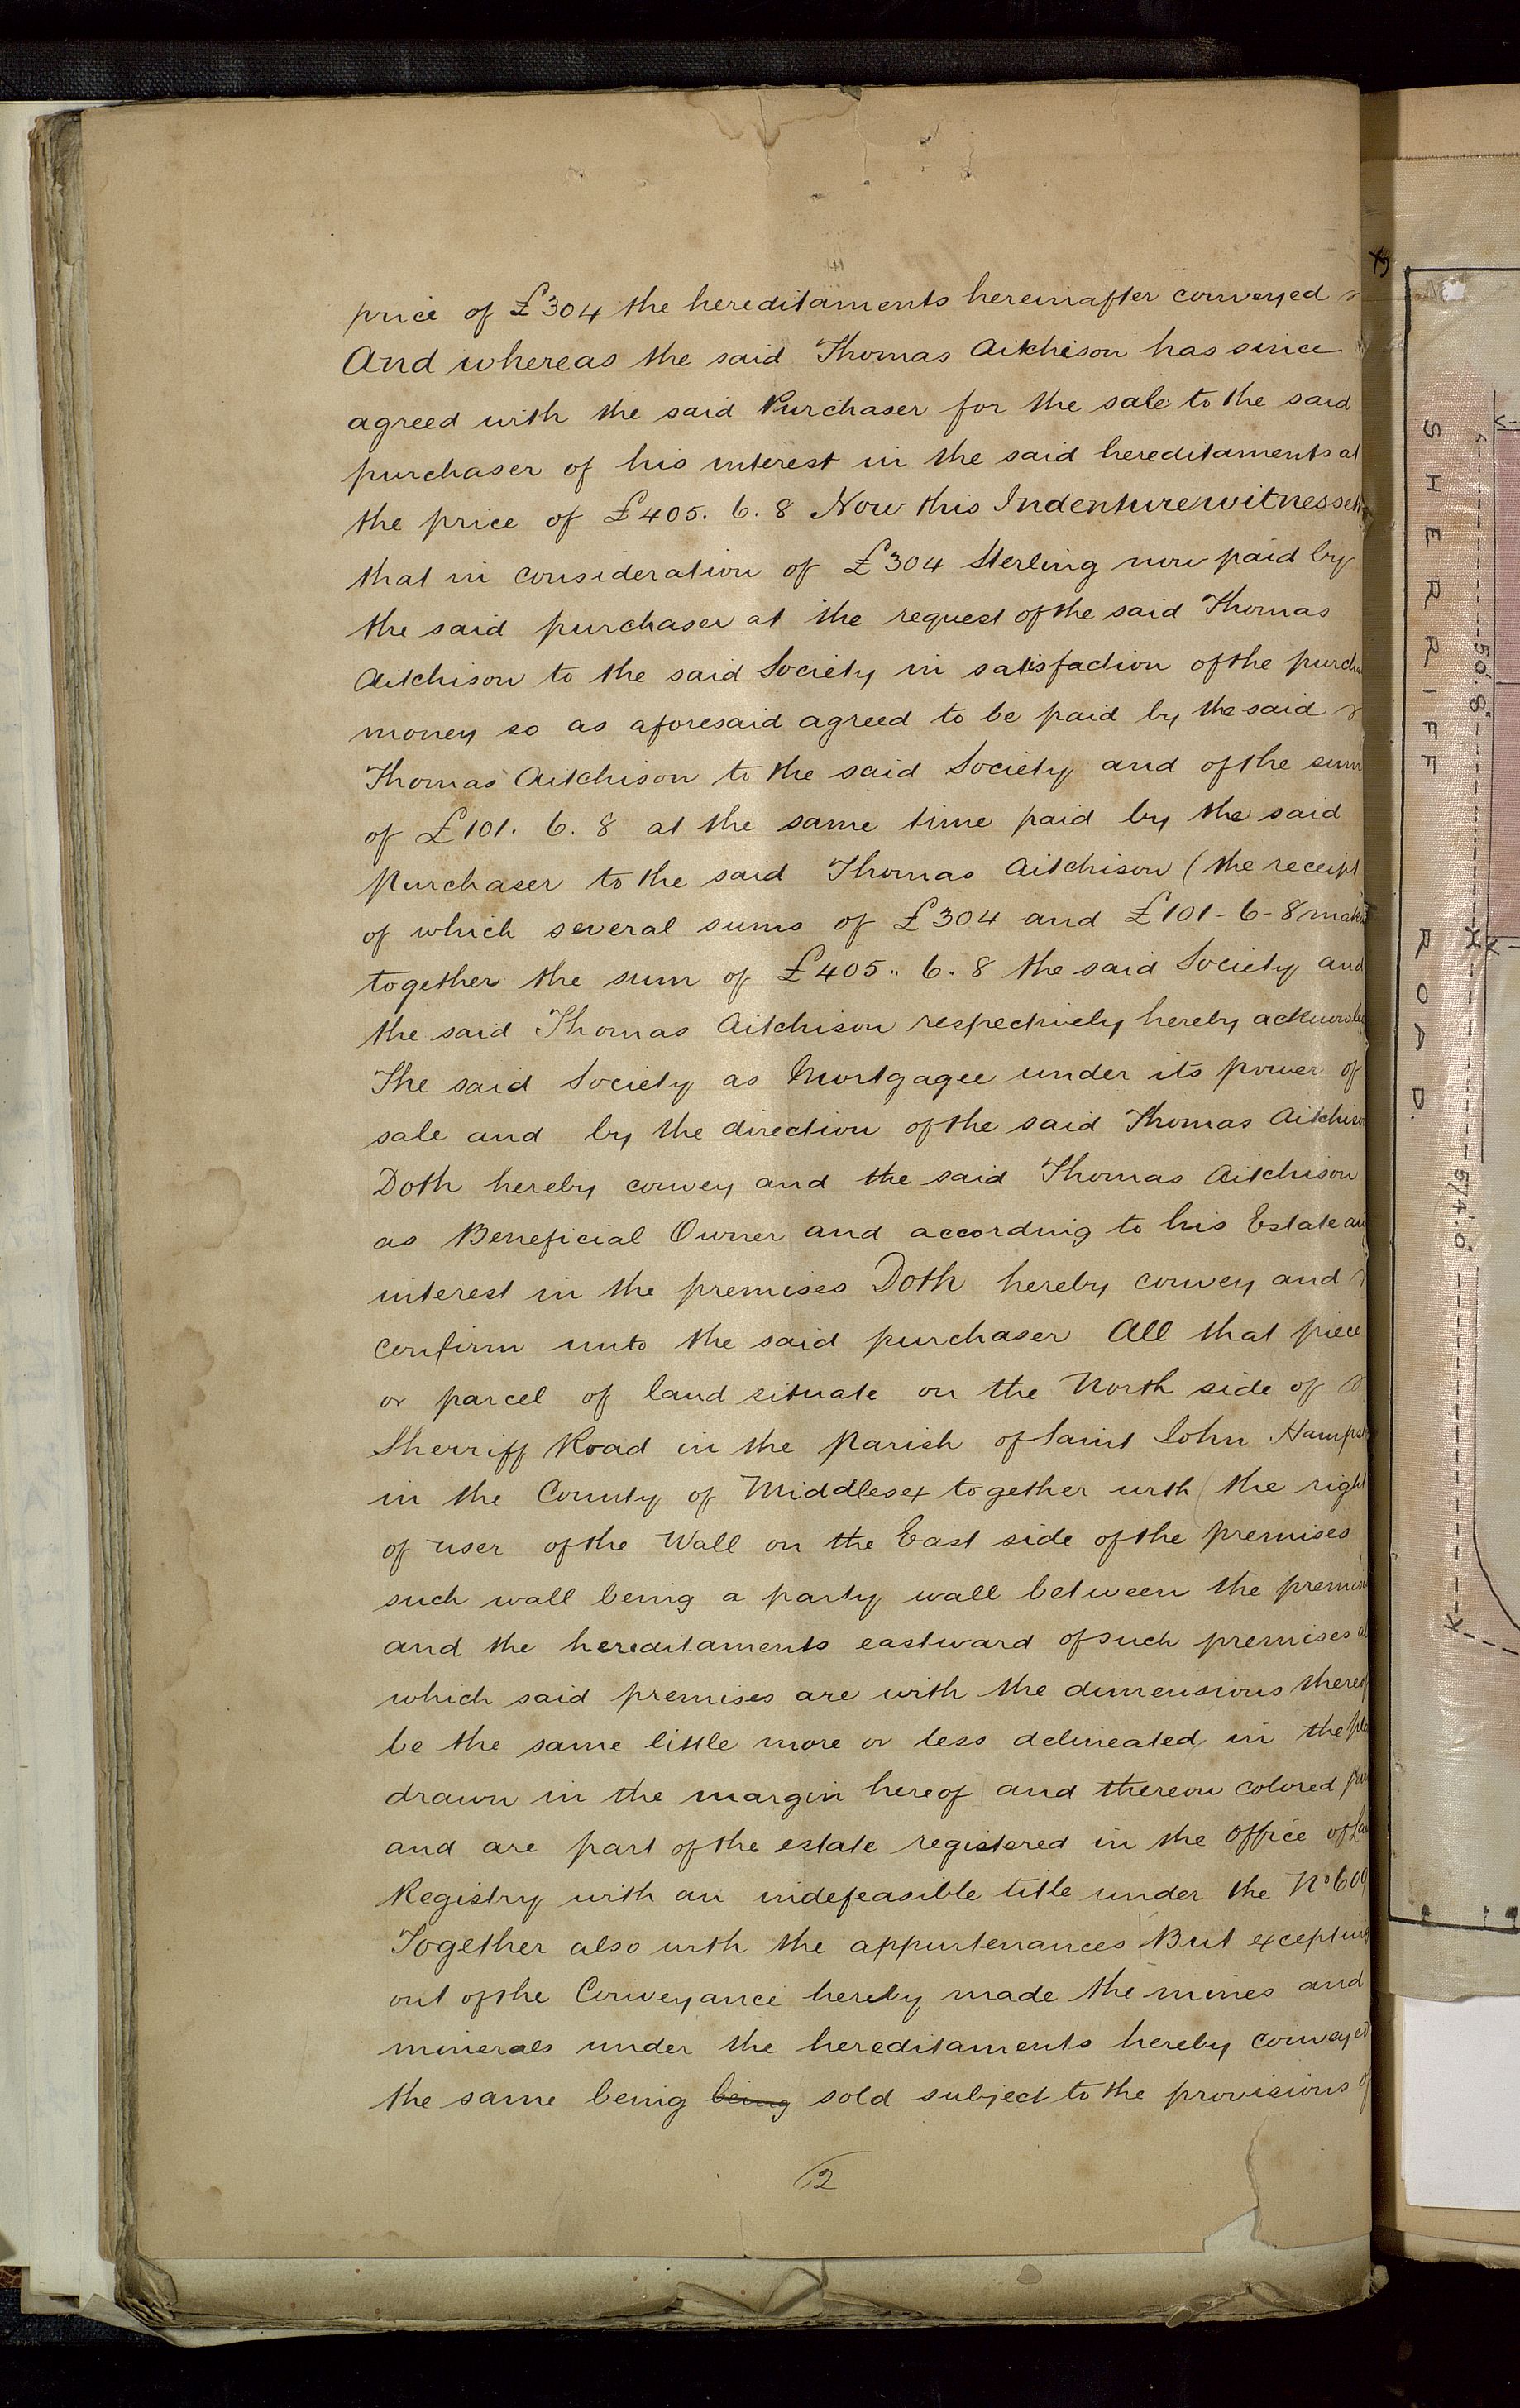 price of £304 the hereditaments hereinafter conveyed
And whereas the said Thomas Aitchison has since
agreed with the said Purchaser for the sale to the said
purchaser of his interest in the said hereditaments at
the price of £405. 6. 8 Now this Indenture witnesseth
that in consideration of £304 Sterling now paid by
the said purchaser at the request of the said Thomas
Aitchison to the said Society in satisfaction of the purcha
money so as aforesaid agreed to be paid by the said
Thomas Aitchison to the said Society and of the sum
of £101. 6. 8 at the same time paid by the said
Purchaser to the said Thomas Aitchison (the receipt
of which several sums of £304 and £101-6-8 makin
together the sum of £405.. 6. 8 the said Society and
the said Thomas Aitchison respectively hereby acknowled
The said Society as Mortgagee under its power of
sale and by the direction of the said Thomas Aitchison
Doth hereby convey and the said Thomas Aitchison
as Beneficial Owner and according to his Estate an
interest in the premises Doth hereby convey and
confirm unto the said purchaser All that piece
or parcel of land situate on the North side of
Sherriff Road in the Parish of Saint John Hampst
in the County of Middlesex together with (the right
of user of the Wall on the East side of the premises
such wall being a party wall between the premis
and the hereditaments eastward of such premises a
which said premises are with the dimensions thereof
be the same little more or less delineated in the pla
drawn in the margin hereof and thereon colored pin
and are part of the estate registered in the Office of La
Registry with an indefeasible title under the No 609
Together also with the appurtenances But excepting
out of the Conveyance hereby made the mines and
minerals under the hereditaments hereby conveyed
the same being being sold subject to the provisions of
2
SHERRIFF ROAD.
50'.8"
574.0